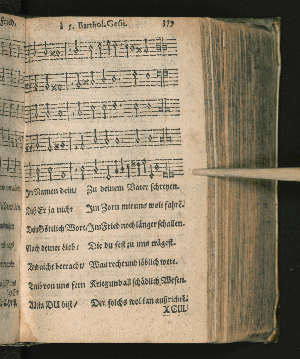 Fried.
à 5. Barthol. Gesii.
359
Im Namen dein / Zu deinem Vater schreyen.
Daß Er ja nicht / Im Zorn mit uns wolt fahrē.
Dein Göttlich Wort / Im Fried noch länger schallen.
Nach deiner Lieb / Die du fest zu uns trägest.
Und nicht betracht / Was recht und löblich were.
Treib von uns fern / Krieg und all schädlich Wesen.
Allein DU bist / Der solchs wol kan außrichtē.
XCIII.